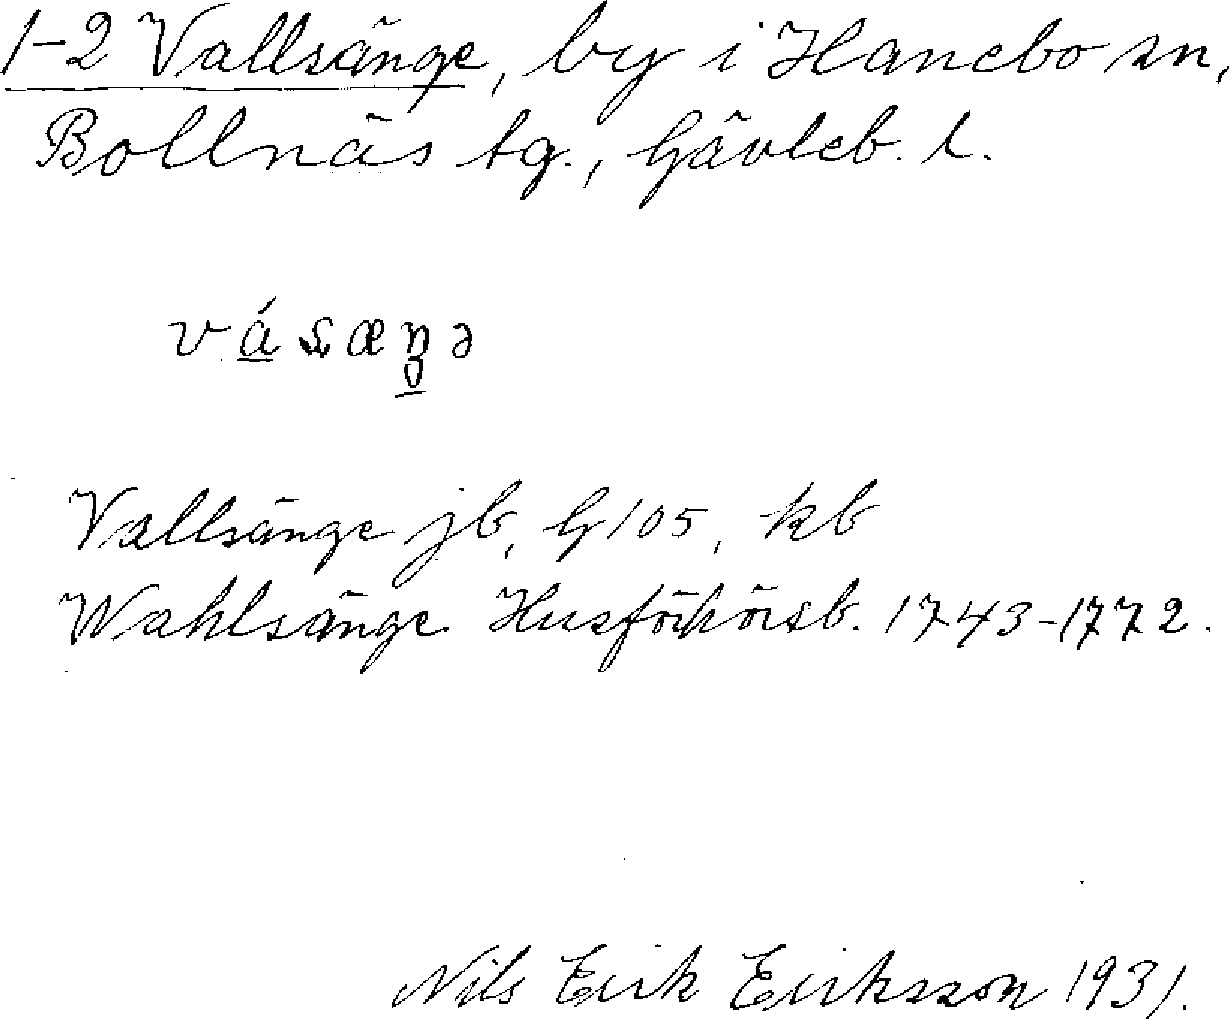 1-2 Vallsänge, by i Hanebo sn,
Bollnäs tg., Gävleb. l.
Vallsänge jb, G 105, kb
Wahlsänge Husförhörsb. 1743-1772.
Nils Erik Eriksson 1931.